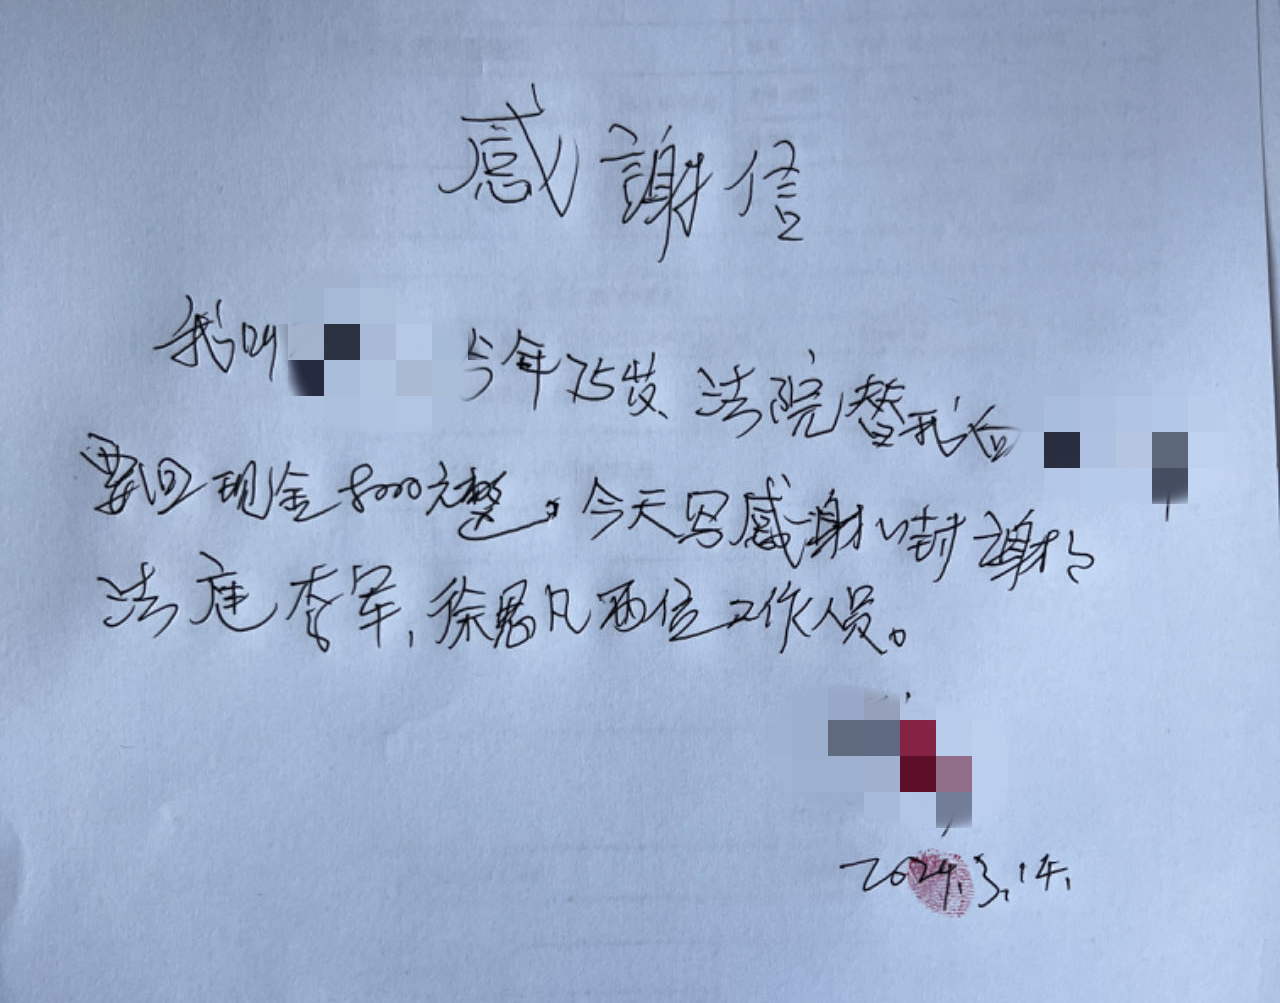 感謝信
我叫 今年75岁 法院替我向
要回现金8000元整。今天写感谢一封 謝了
法庭李军,徐君凡两位工作人员。
2024.3.14.